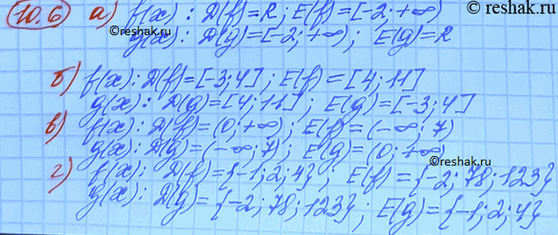 reshak.ru
10.6 а) f(x): D(f)=R; E(f)=[-2; +∞)
g(x): D(g)=[-2; +∞); E(g)=R
б) f(x): D(f)=[-3; 4]; E(f)=[4; 11]
g(x): D(g)=[4; 11]; E(g)=[-3; 4]
в) f(x): D(f)=(0; +∞); E(f)=(-∞; 7)
g(x): D(g)=(-∞; 7); E(g)=(0; +∞)
г) f(x): D(f)={-1; 2; 4}; E(f)={-2; 78; 123}
g(x): D(g)={-2; 78; 123}; E(g)={-1; 2; 4}
reshak.ru